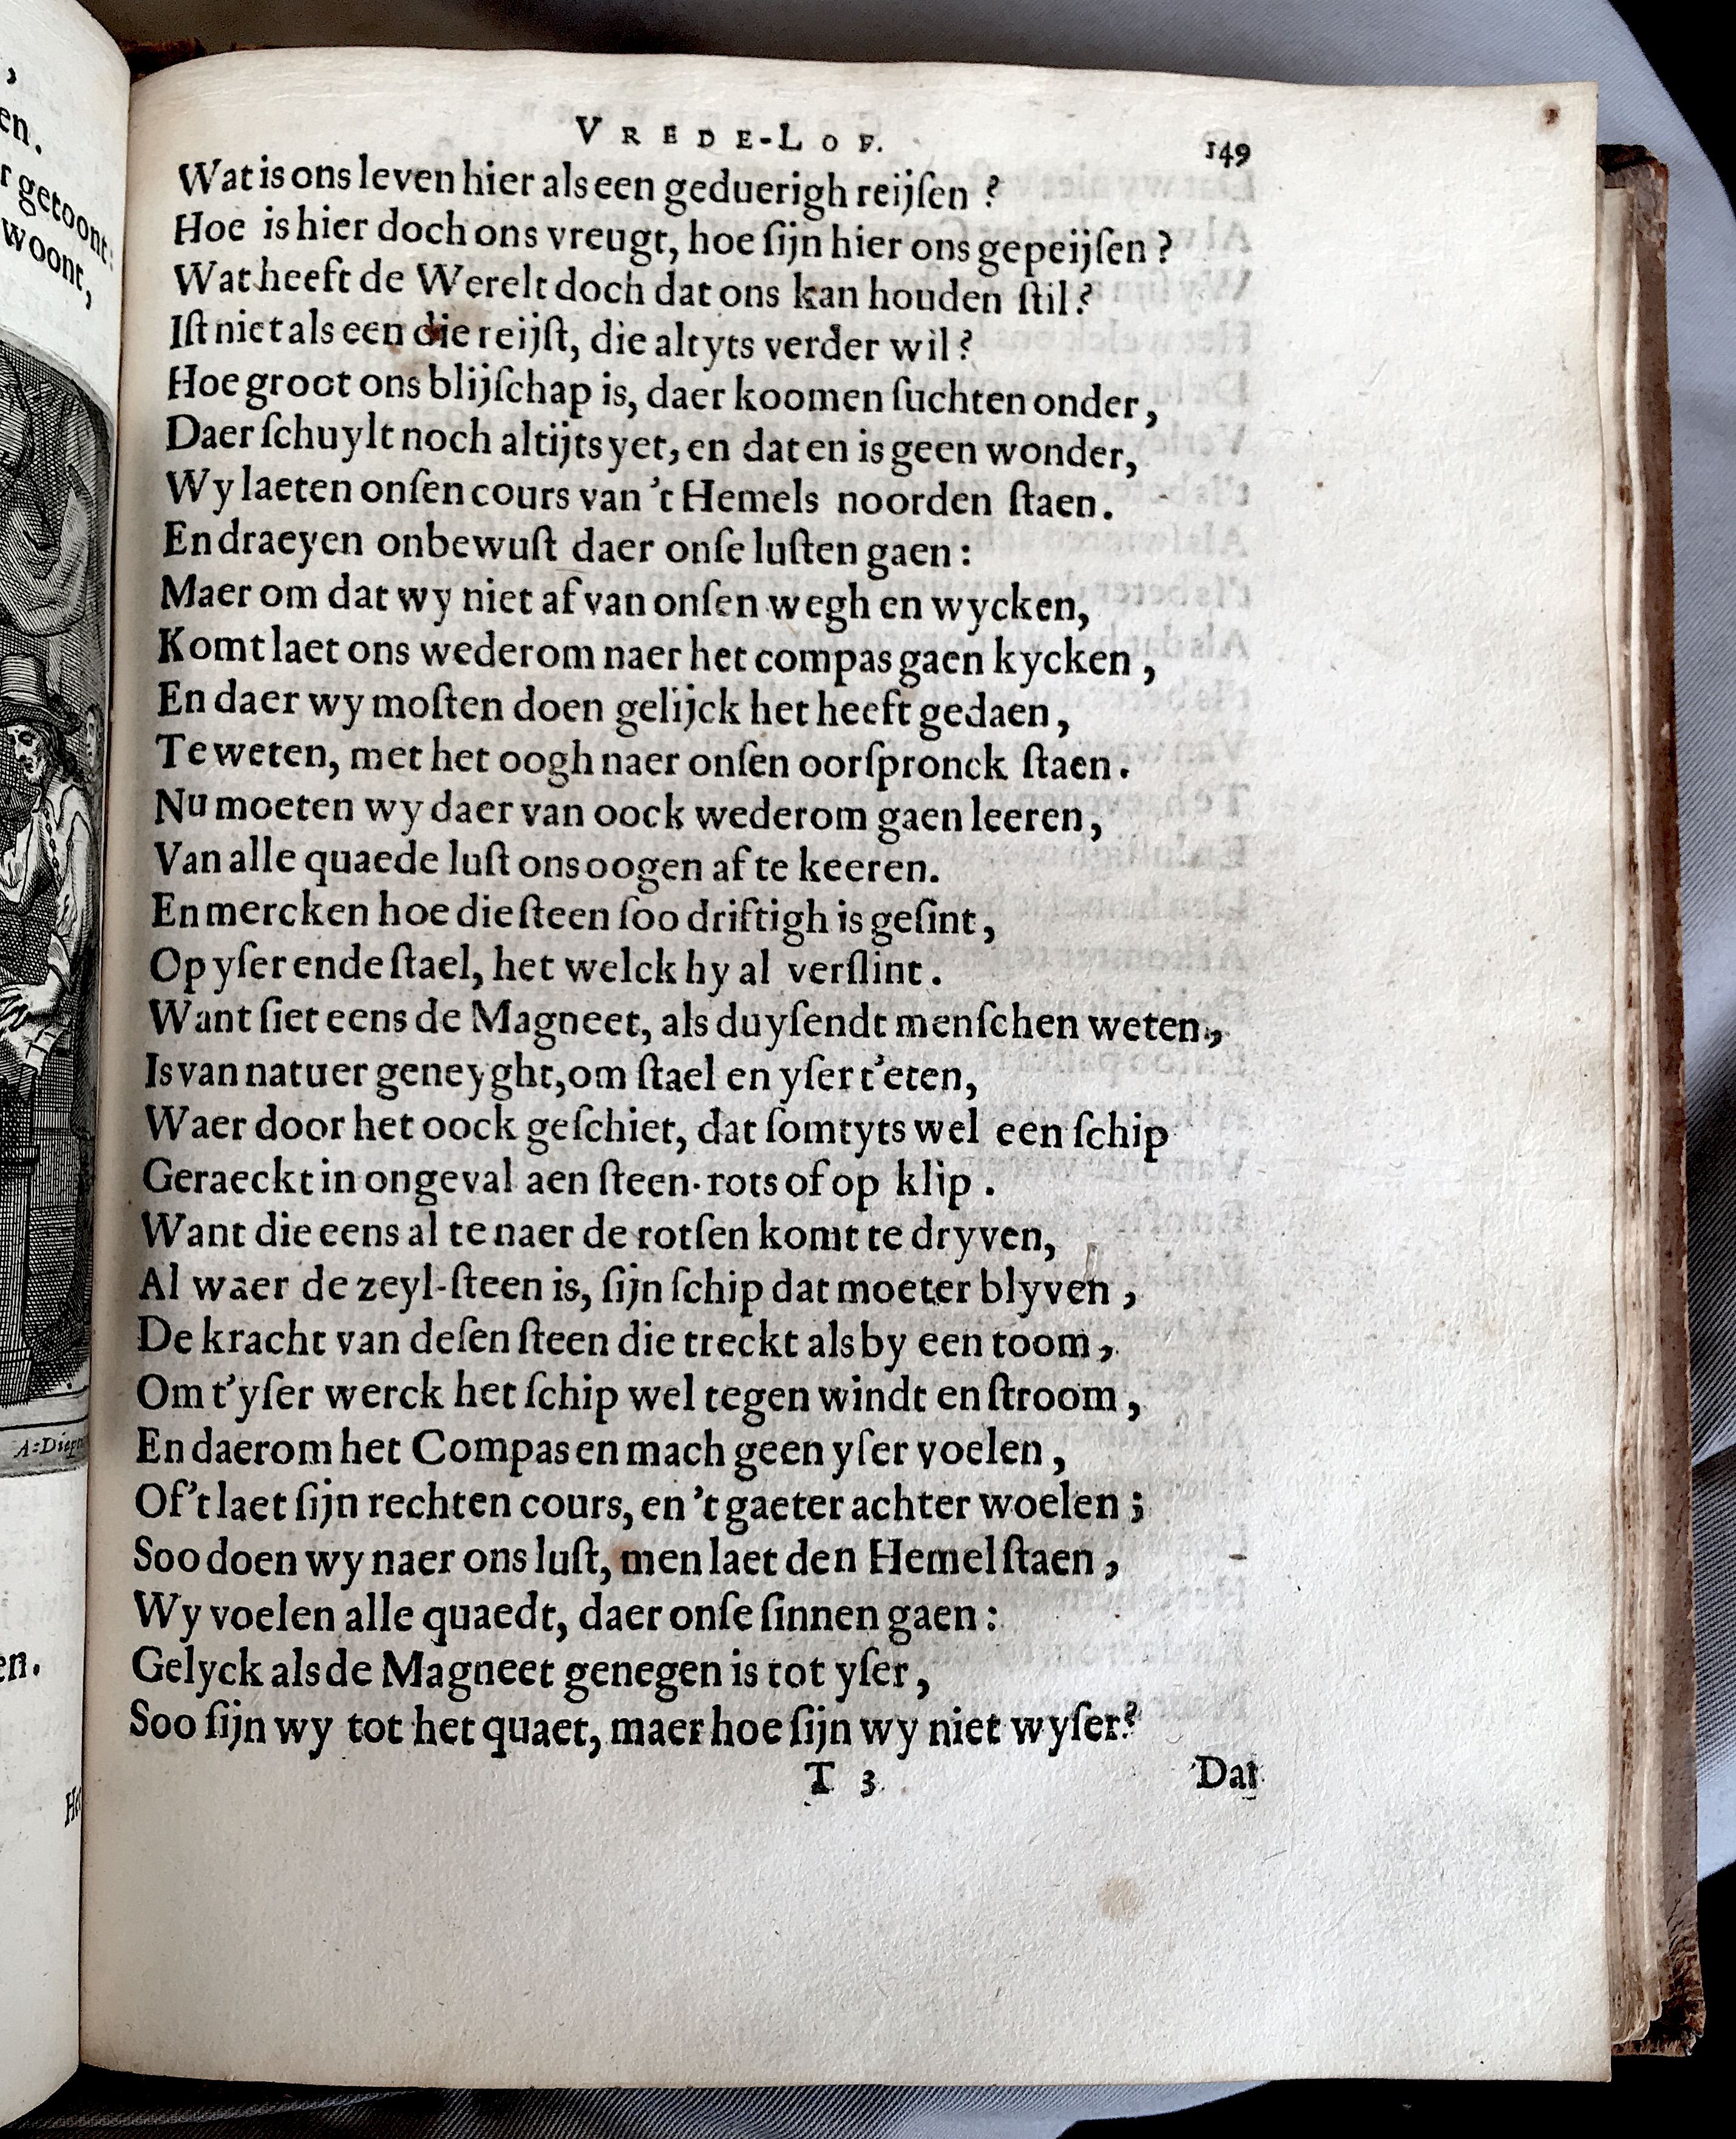 ,
en.
r getoont:
woont,
A:Diep
en.
VREDE-LOF. 149
Wat is ons leven hier als een geduerigh reijſen ?
Hoe is hier doch ons vreugt, hoe ſijn hier ons gepeijſen ?
Wat heeft de Werelt doch dat ons kan houden ſtil ?
Iſt niet als een die reijſt, die altyts verder wil ?
Hoe groot ons blijſchap is, daer koomen ſuchten onder,
Daer ſchuylt noch altijts yet, en dat en is geen wonder,
Wy laeten onſen cours van 't Hemels noorden ſtaen.
En draeyen onbewuſt daer onſe luſten gaen :
Maer om dat wy niet af van onſen wegh en wycken,
Komt laet ons wederom naer het compas gaen kycken ,
En daer wy moſten doen gelijck het heeft gedaen,
Te weten, met het oogh naer onſen oorſpronck ſtaen.
Nu moeten wy daer van oock wederom gaen leeren,
Van alle quaede luſt ons oogen af te keeren.
En mercken hoe die ſteen ſoo driftigh is geſint,
Op yſer ende ſtael, het welck hy al verſlint.
Want ſiet eens de Magneet, als duyſendt menſchen weten,
Is van natuer geneyght, om ſtael en yſer t'eten,
Waer door het oock geſchiet, dat ſomtyts wel een ſchip
Geraeckt in ongeval aen ſteen-rots of op klip .
Want die eens al te naer de rotſen komt te dryven,
Al waer de zeyl-ſteen is, ſijn ſchip dat moeter blyven ,
De kracht van deſen ſteen die treckt als by een toom,
Om t'yſer werck het ſchip wel tegen windt en ſtroom ,
En daerom het Compas en mach geen yſer voelen ,
Of't laet ſijn rechten cours, en 't gaeter achter woelen ;
Soo doen wy naer ons luſt, men laet den Hemel ſtaen ,
Wy voelen alle quaedt, daer onſe ſinnen gaen :
Gelyck als de Magneet genegen is tot yſer,
Soo ſijn wy tot het quaet, maer hoe ſijn wy niet wyſer?
T 3 Dat